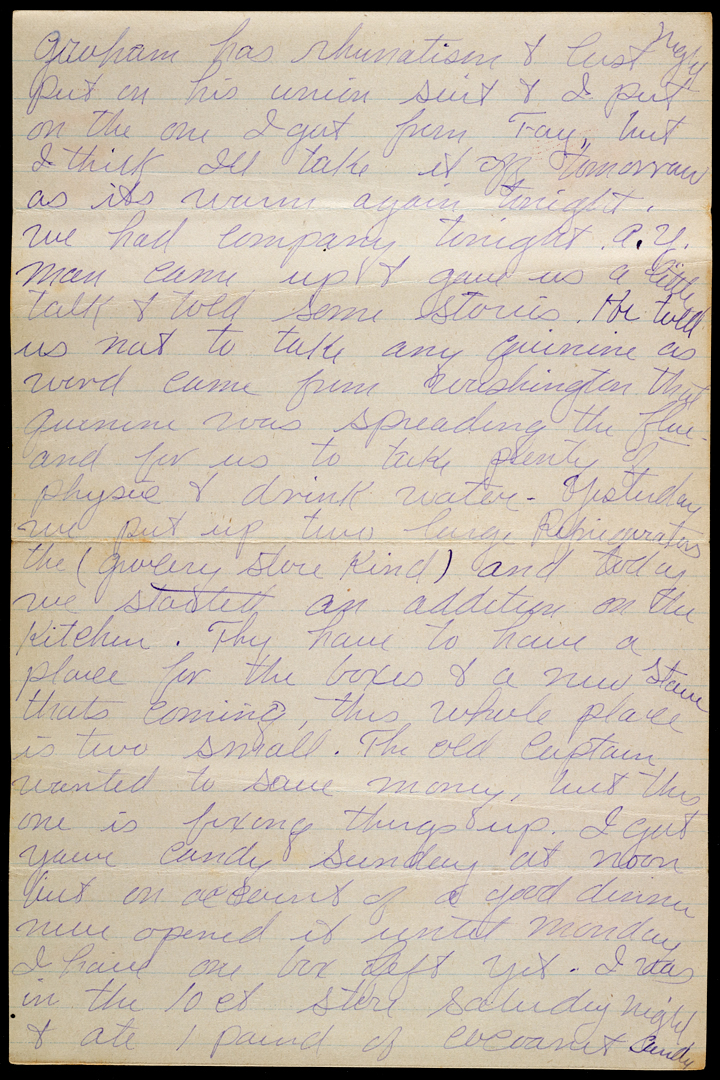 Graham has rhumatism & last night
put on his union suit & I put
on the one I got from Fay, but
I think Ill take it off tomorrow
as its warm again tonight.
we had company tonight. a. Y.
man came up & gave us a little
talk & told some stories. He told
us not to take any quinine as
word came from Washington that
quenine was spreading the flue-
and for us to take plenty of
physic & drink water- Yesturday
we put up two large Refrigerators
the (grocery store kind) and today
we started an addition on the
Kitchen. Thy have to have a
place for the boxes & a new stove
thats coming, this whole place
is two small. The old Captain
wanted to save money, but this
one is fixing things up. I got
youre candy Sunday at noon
but on account of a good dinner
never opened it until Monday
I have one box left yet. I was
in the 10 ct store Saturday night
& ate 1 pound of cocoanut candy